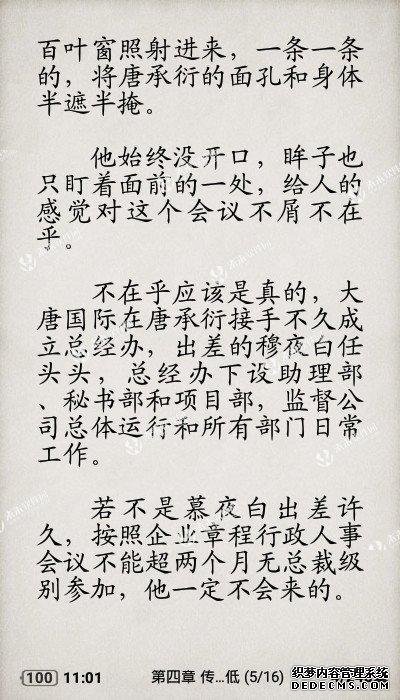 百叶窗照射进来，一条一条
的，将唐承衍的面孔和身体
半遮半掩。
他始终没开口，眸子也
只盯着面前的一处，给人的
感觉对这个会议不屑不在
乎。
不在乎应该是真的，大
唐国际在唐承衍接手不久成
立总经办，出差的穆夜白任
头头，总经办下设助理部
、秘书部和项目部，监督公
司总体运行和所有部门日常
工作。
若不是慕夜白出差许
久，按照企业章程行政人事
会议不能超两个月无总裁级
别参加，他一定不会来的。
100 11:01
第四章 传...低 (5/16)
织梦内容管理系统
DEDECMS.COM